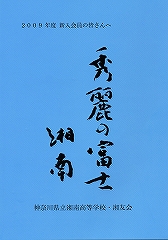 2009年度 新入会員の皆さんへ
秀麗の富士
湘南
神奈川県立湘南高等学校・湘友会